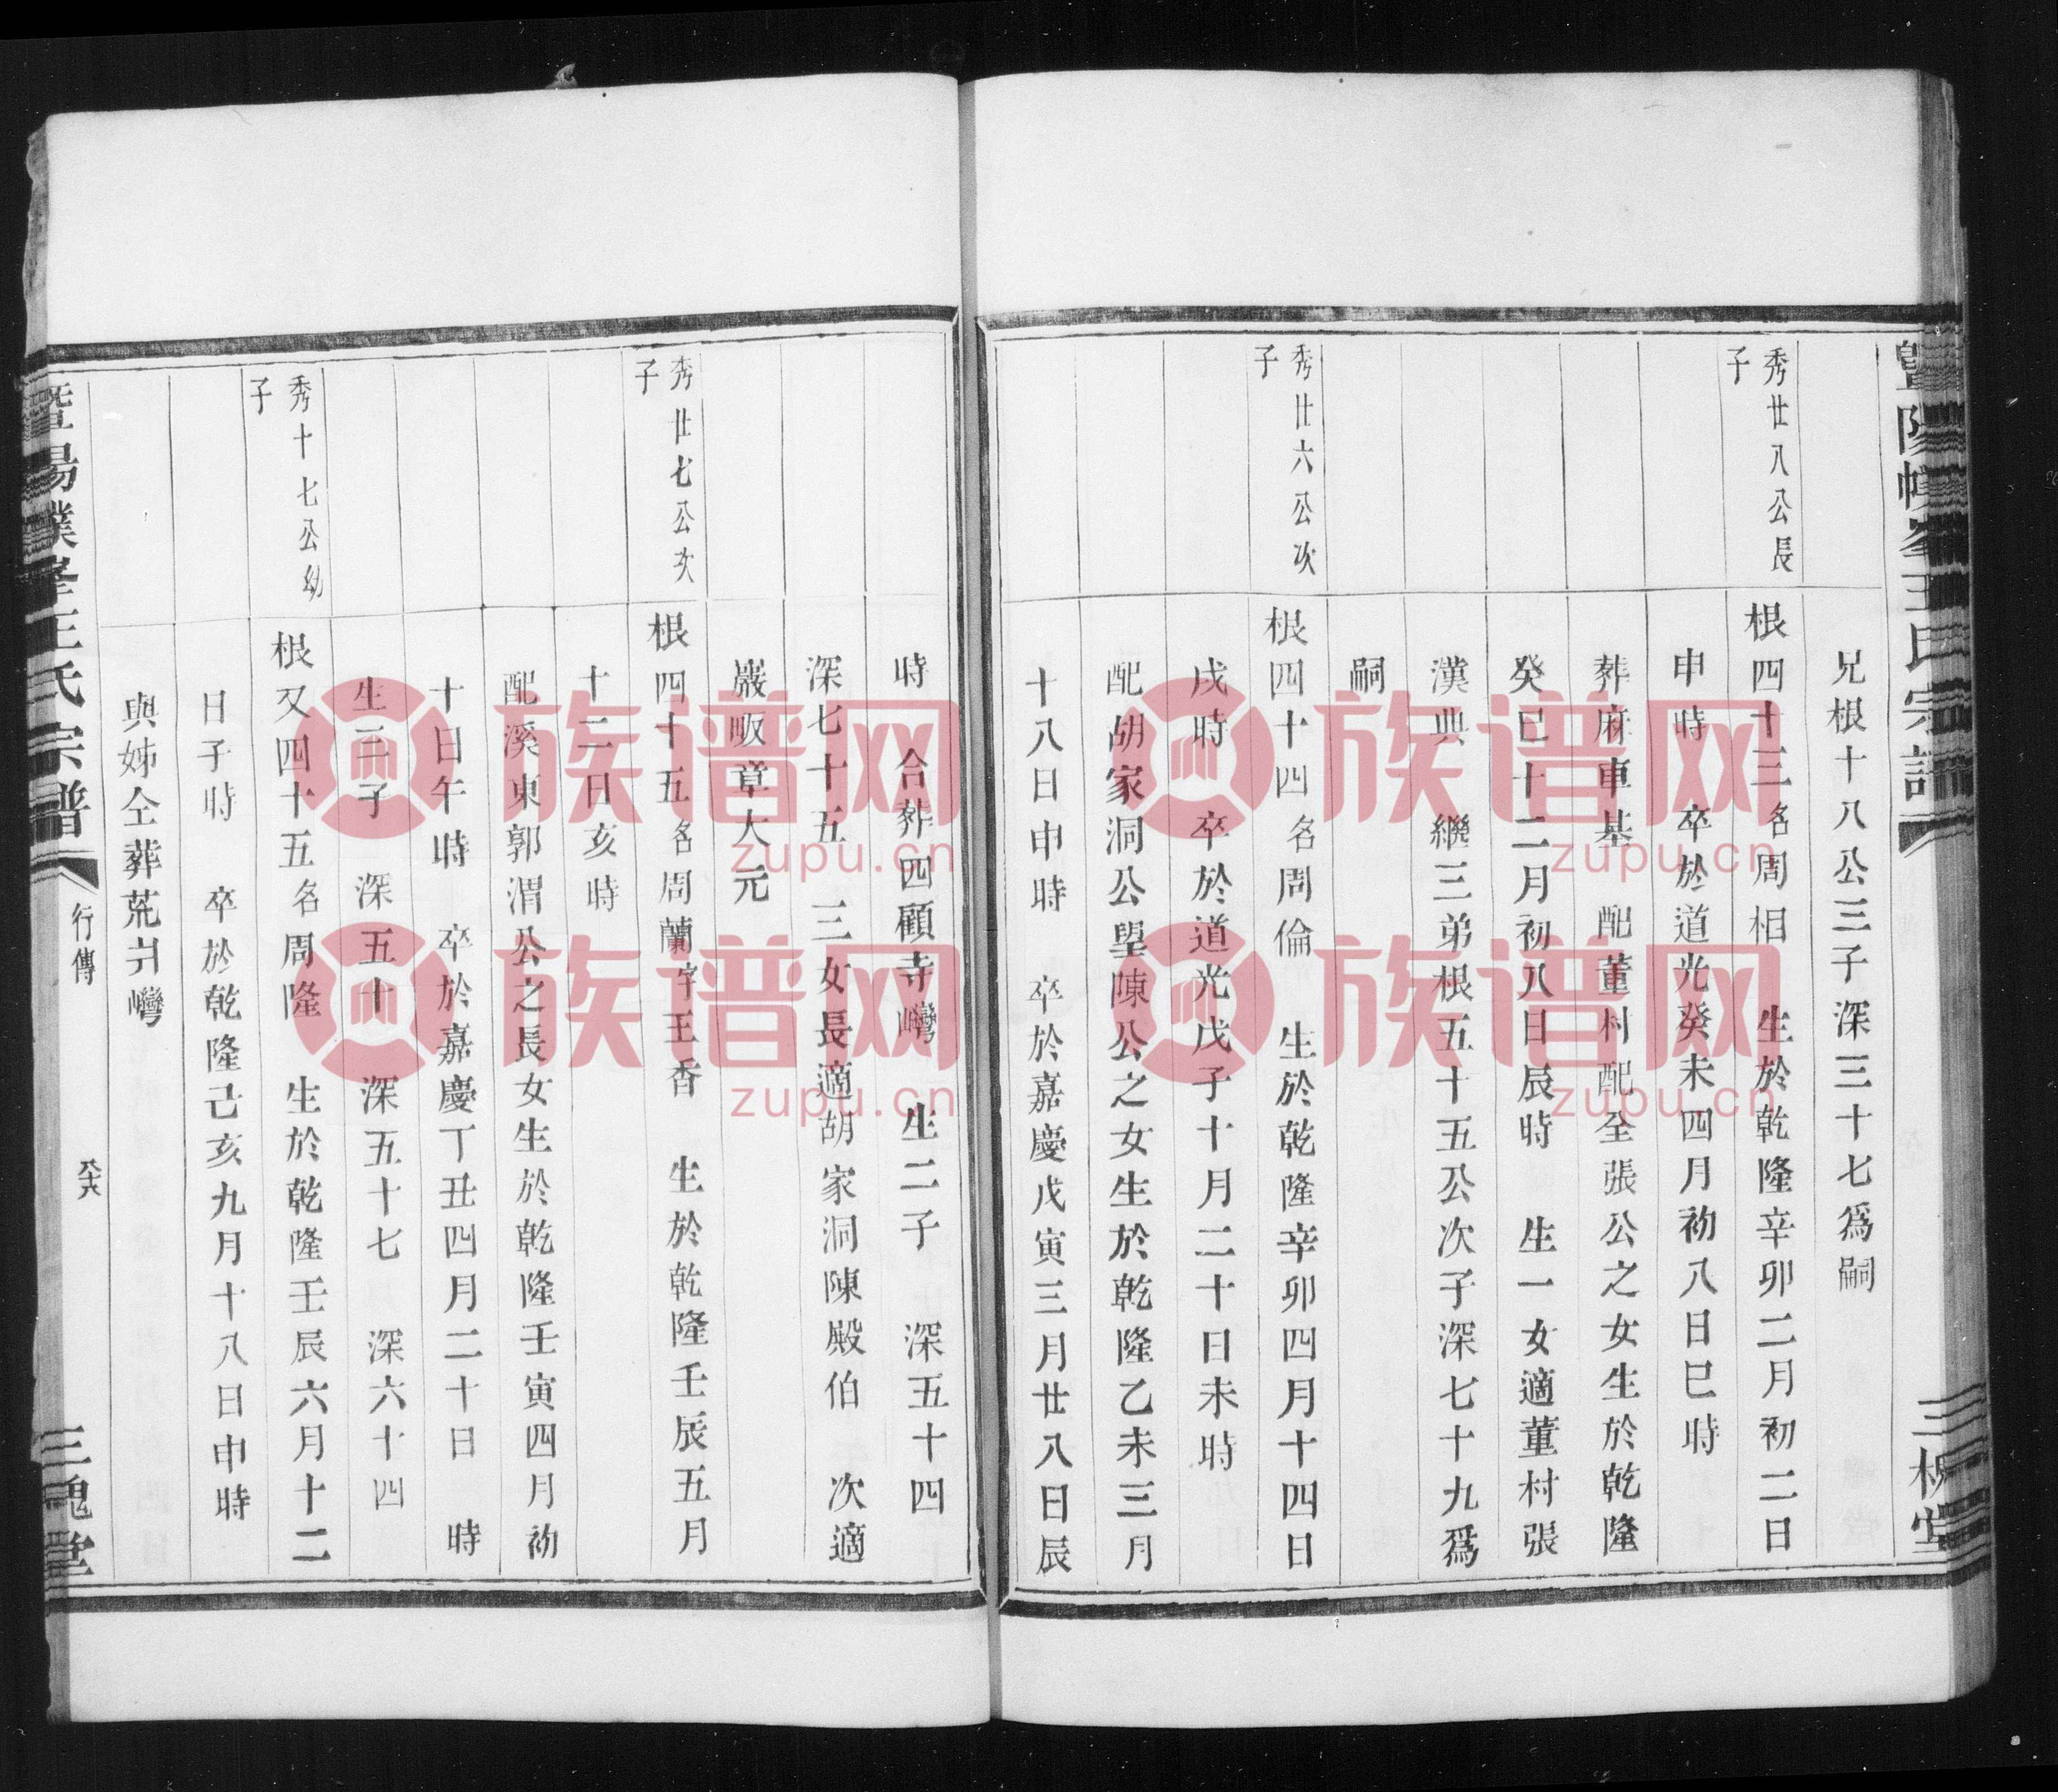 兄根十八公三子深三十七爲嗣
秀廿八公長
子
根四十三名周相　生於乾隆辛卯二月初二日
申時　卒於道光癸未四月初八日巳時
葬麻車基　配董村配全張公之女生於乾隆
癸巳十二月初八日辰時　生一女適董村張
漢典　繼三弟根五十五公次子深七十九爲
嗣
秀廿六公次
子
根四十四名周倫　生於乾隆辛卯四月十四日
戌時　卒於道光戊子十月二十日未時
配胡家洞公望陳公之女生於乾隆乙未三月
十八日申時　卒於嘉慶戊寅三月廿八日辰
時　合葬四顧寺灣　生二子　深五十四
深七十五　三女長適胡家洞陳殿伯　次適
巖畈章大元
秀廿七公次
子
根四十五名周蘭字王香　生於乾隆壬辰五月
十二日亥時
配溪東郭渭公之長女生於乾隆壬寅四月初
十日午時　卒於嘉慶丁丑四月二十日　時
生三子　深五十　深五十七　深六十四
秀十七公幼
子
根又四十五名周隆　生於乾隆壬辰六月十二
日子時　卒於乾隆己亥九月十八日申時
與姊仝葬荒灣
宗譜
行傳
三槐堂
族谱网
zupu.cn
族谱网
zupu.cn
族谱网
zupu.cn
族谱网
zupu.cn